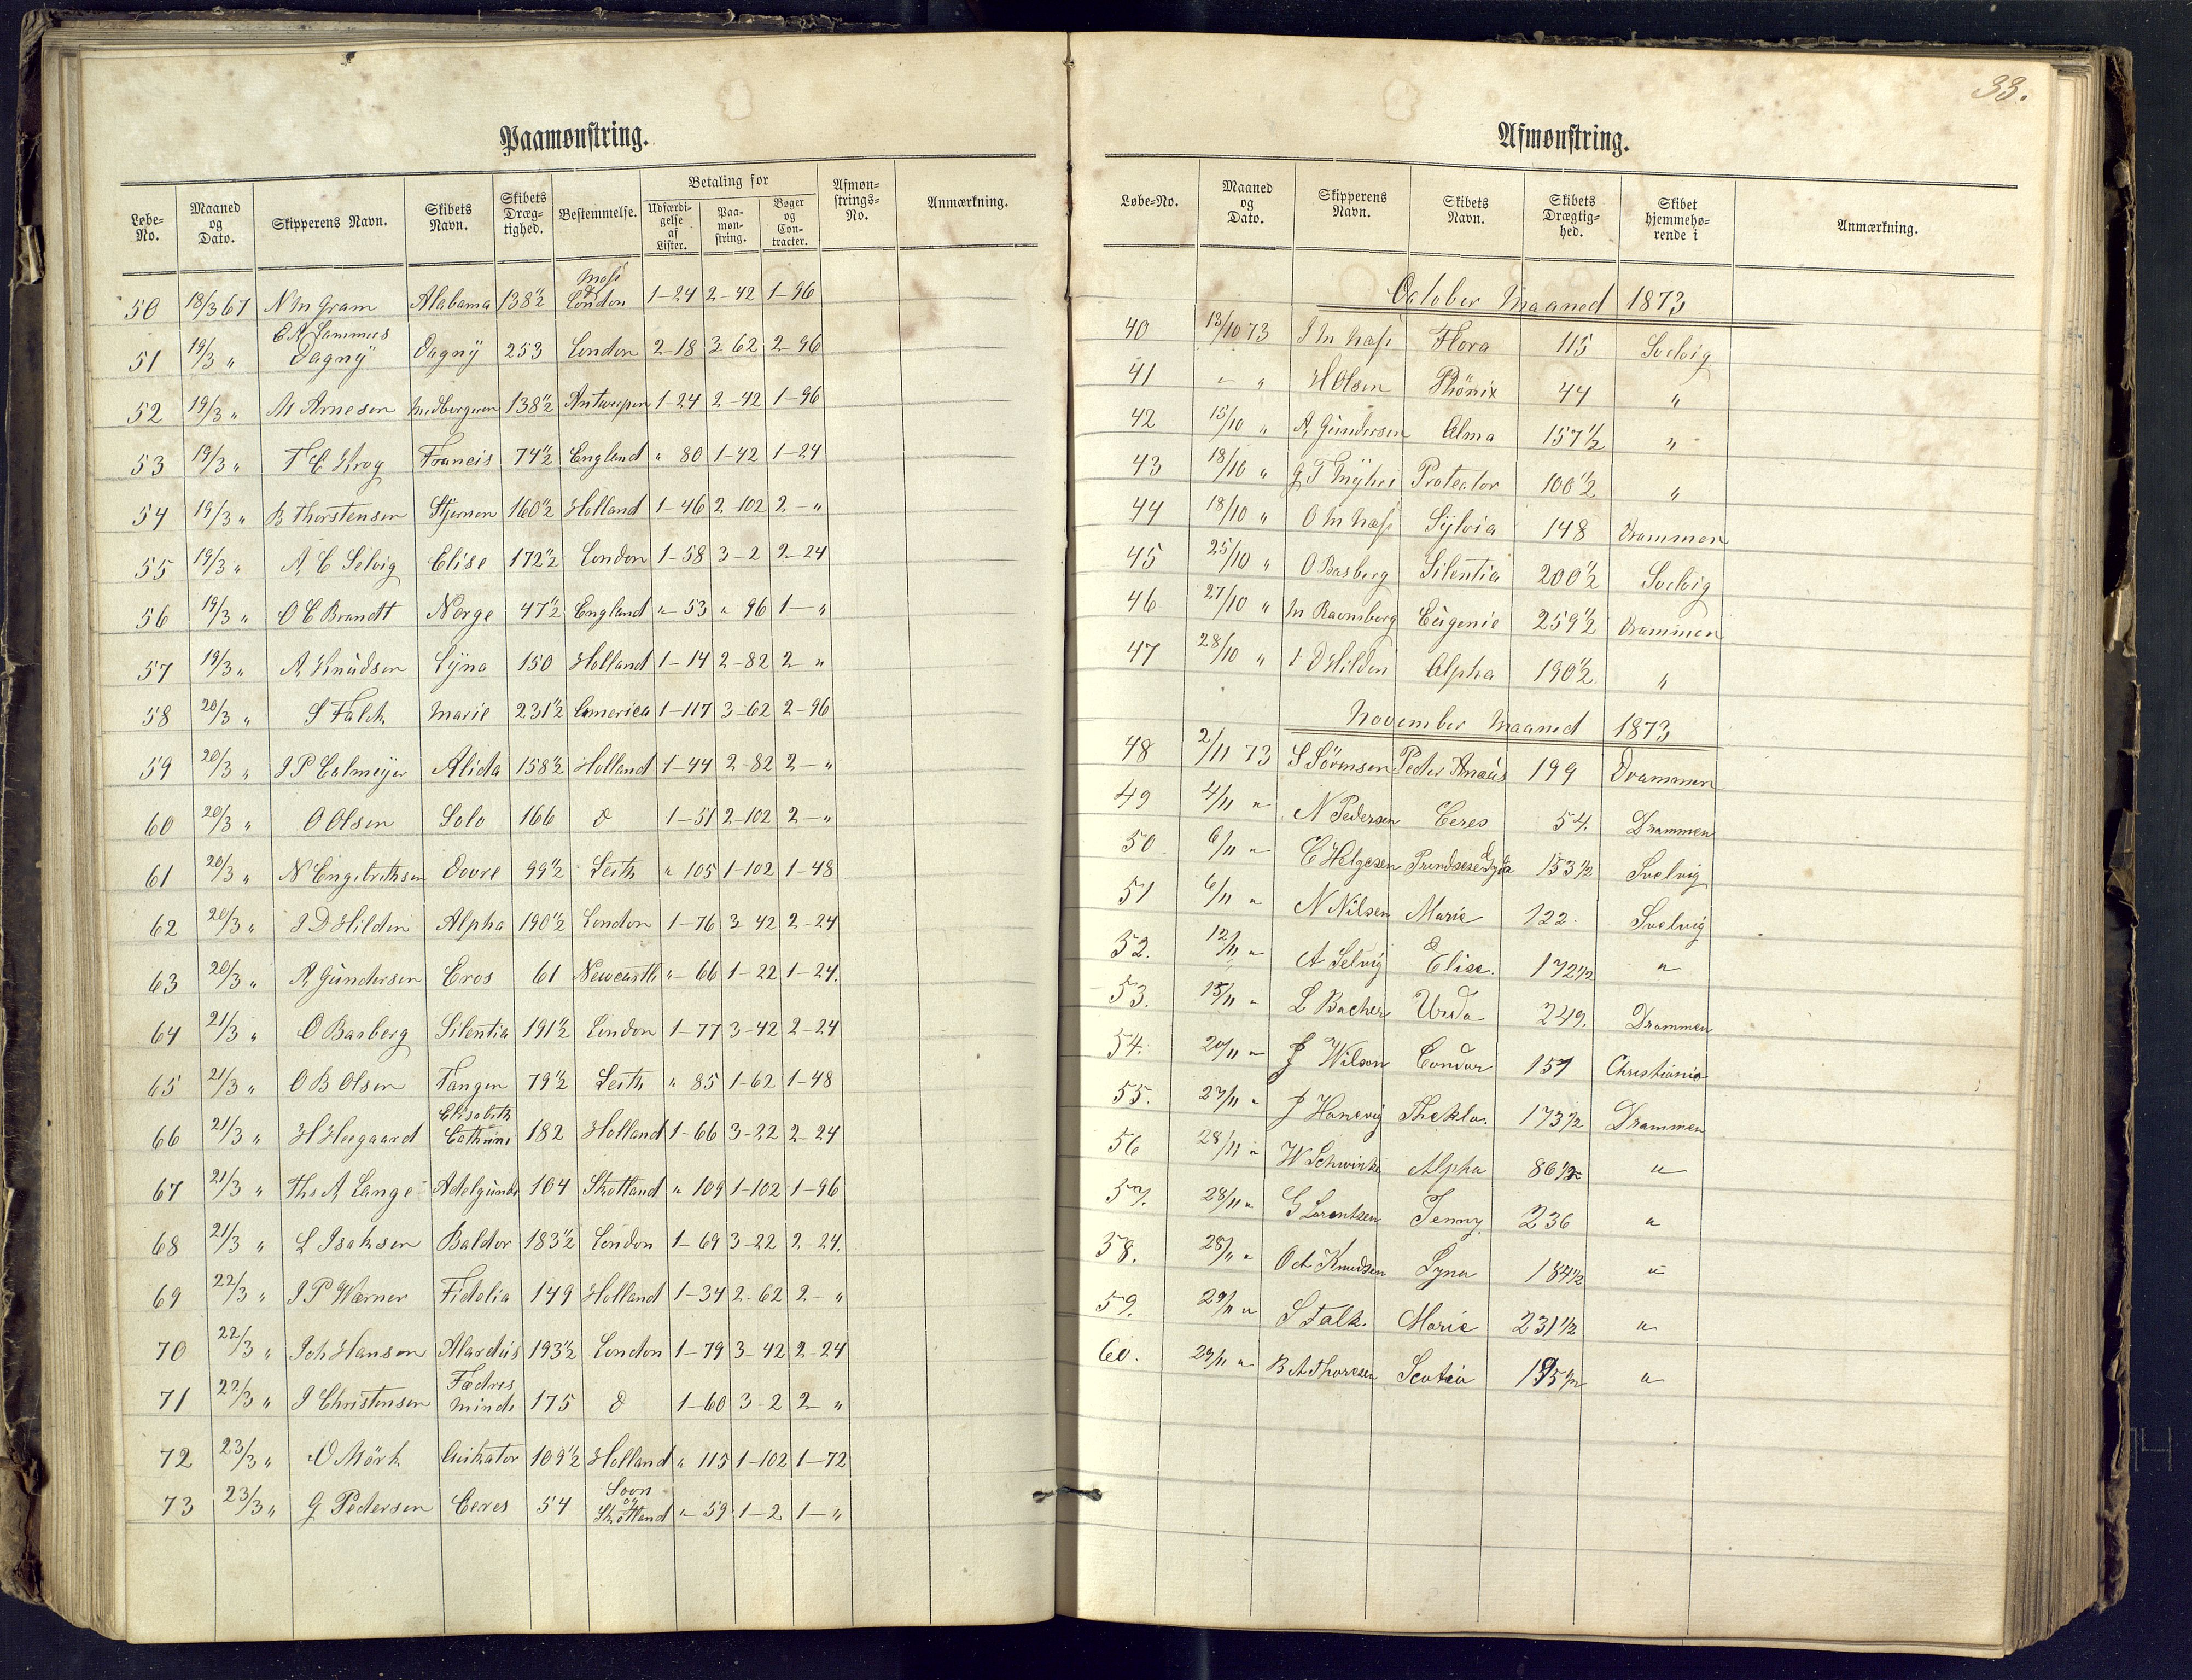 Paamønstring.
Løbe-No. Maaned og Dato. Skipperens Navn. Skibets Navn. Skibets Dræg-tighed. Bestemmelse. Betaling for Udfærdi-gelse af Lister. Paa-møn-string. Bøger og Con-tracter. Afmøn-strings-No. Anmærkning.
50 18/3 67 N M Gram Alabama 138½ Moss & London 1-24 2-42 1-96
51 19/3 " Dagny Dagnÿ 253 London 2-18 3 62 2-96
52 19/3 " M Arnesen Medborgeren 138½ Antwerpen 1-24 2-42 1-96
53 19/3 " T C Krog Francis 74½ England " 80 1-42 1-24
54 19/3 " B Thorstensen Stjernen 160½ Holland 1-46 2-102 2-"
55 19/3 " A C Selvig Elise 172½ London 1-58 3-2 2-24
56 19/3 " O C Brandt Norge 47½ England "-53 " 96 1-"
57 19/3 " A Knudsen Lÿna 150 Holland 1-14 2-82 2-"
58 20/3 " S Falck Marie 231½ America 1-117 3-62 2-96
59 20/3 " J P Calmeÿer Alida 158½ Holland 1-44 2-82 2-"
60 20/3 " O Olsen Solo 166 d 1-51 2-102 2-"
61 20/3 " N Engebrethsen Dovre 99½ Leith " 105 1-102 1-48
62 20/3 " J D Hilden Alpha 190½ London 1-76 3-42 2-24
63 20/3 " A Gundersen Eros 61 Newcastle "-66 1-22 1-24.
64 21/3 " O Basberg Silentia 191½ London 1-77 3-42 2-24
65 21/3 " O B Olsen Tangen 79½ Leith " 85 1-62 1-48
66 21/3 " H Heegaard Elisabeth Cathrine 182 Holland 1-66 3-22 2-24
67 21/3 " Ths A Lange Adelgunde 104 Skotland " 109 1-102 1-96
68 21/3 " L Isaksen Baldor 183½ London 1-69 3-22 2-24.
69 22/3 " J P Wærner Fidelia 149 Holland 1-34 2-62 2-"
70 22/3 " Joh Hansen Alardus 193½ London 1-79 3-42 2-24
71 22/3 " J Christensen Fædres Minde 175 d 1-60 3-2 2-"
72 23/3 " O Mörk 109½ Holland " 115 1-102 1-72
73 23/3 " G Pedersen Ceres 54 Soon og Skotland "-59 1-2 1-"
33.
Afmønstring.
Løbe-No. Maaned og Dato. Skipperens Navn. Skibets Navn. Skibets Drægtig-hed. Skibet hjemmehø-rende i Anmærkning.
October Maaned 1873
40 13/10 73 J M Nass Flora 115 Svelvig
41 " " H Olsen Phönix 44 "
42 15/10 " A Gundersen Alma 157½ "
43 18/10 " Protector 100½ "
44 18/10 " O M Nass Sÿlvia 148 Drammen
45 25/10 " O Basberg Silentia 200½ Svelvig
46 27/10 " M Ravnsborg Eugenie 259½ Drammen
47 28/10 " J D Hilden Alpha 190½ "
November Maaned 1873
48 2/11 73 S Sörensen Peder Anæus 199 Drammen
49 4/11 " N Pedersen Ceres 54. Drammen
50 6/11 " C Helgesen 153½ Svelvig
51 6/11 " N Nilsen Marie 122. Svelvig
52. 12/11 " A Selvig Elise. 172½ "
53. 15/11 " L Bacher Urda 249. Drammen
54. 20/11 " J Wilson Condor 157 Christiania
55. 27/11 " J Hanevig Thekla. 173½ Drammen
56 28/11 " W Schwinke Alpha 86½ "
57. 28/11 " G Lorentzen Jenny 236 "
58. 28/11 " Oct Knudsen Lyna 184½ "
59. 29/11 " S Falk. Marie 231½ "
60. 29/11 " B A Thoresen Scotia 195½ "